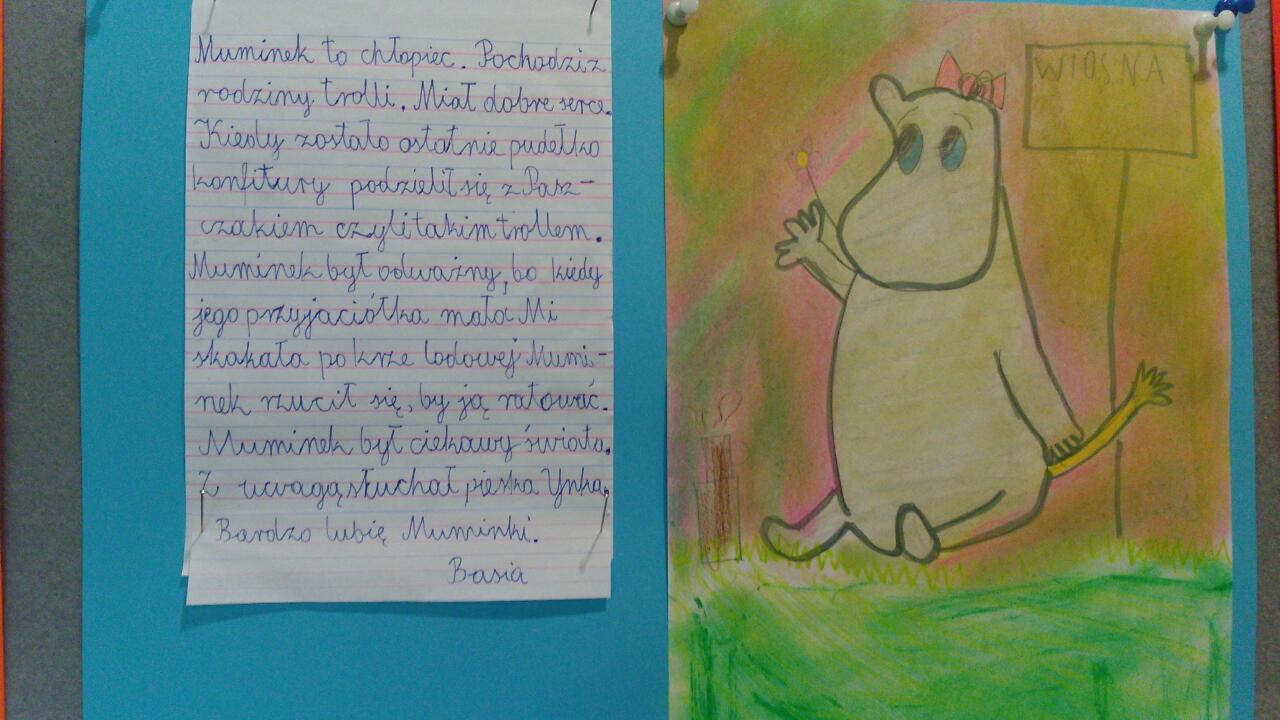 Muminek to chłopiec. Pochodzi z
rodziny trolli. Miał dobre serce.
Kiedy zostało ostatnie pudełko
konfitury podzielił się z Pasz-
czakiem czyli takim trollem.
Muminek był odważny, bo kiedy
jego przyjaciółka mała Mi
skakała po krze lodowej Mumi-
nek rzucił się, by ją ratować.
Muminek był ciekawy świata.
Z uwagą słuchał pieska Ynka.
Bardzo lubię Muminki.
Basia
WIOSNA